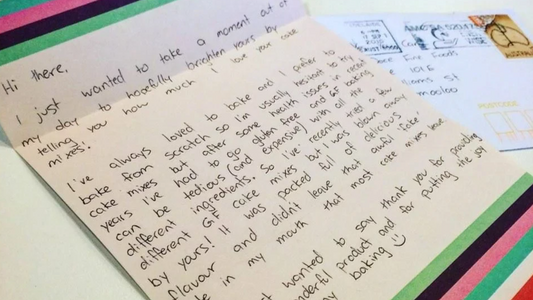 Hi there,
I just wanted to take a moment out of
my day to hopefully brighten yours by
telling you how much I love your cake
mixes!
I've always loved to bake and I prefer to
bake from scratch so I'm usually hesitant to try
cake mixes but after some health issues in recent
years I've had to go gluten free and GF baking
can be tedious (and expensive) with all the
different ingredients. So I've recently tried a few
different GF cake mixes but I was blown away
by yours! It was packed full of delicious
flavour and didn't leave that awful 'fake'
in my mouth that most cake mixes leave
wanted to say thank you for providing
product and for putting the joy
baking ☺
Fine Foods
St
POSTCODE
AUSTRALIA